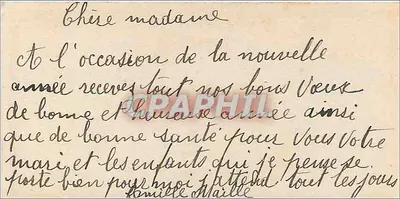 Chère madame
A l'occasion de la nouvelle
année receves tout nos bons Vœux
de bonne et heureuse année ainsi
que de bonne santé pour vous votre
mari et les enfants qui je pense se
porte bien pour moi j'attend tout les jours
famille